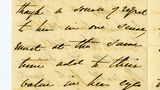 though a source of regret
to him in one sense
must at the same
time add to their
value in her eyes